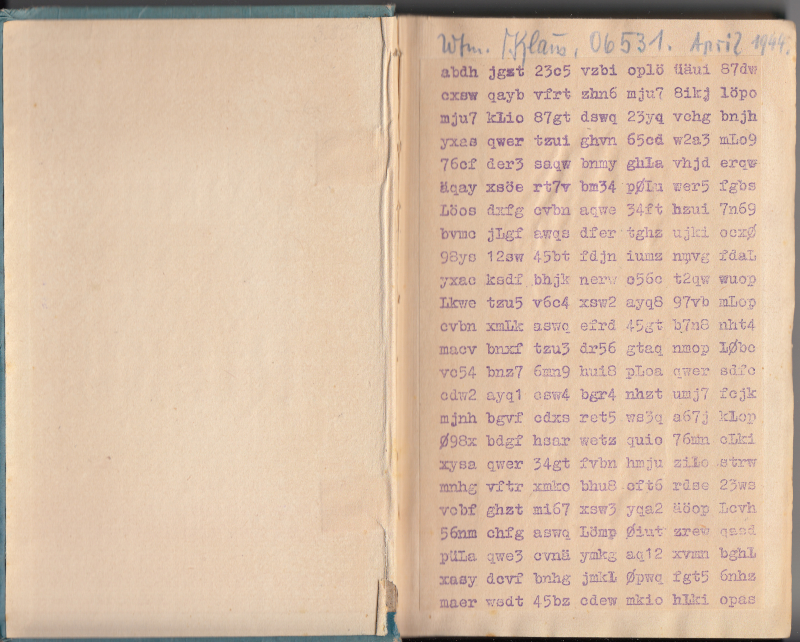 Wtm. J. Klaus, 06531. April 1944.
abdh jgzt 23c5 vzbi oplö üäui 87dw
cxsw qayb vfrt zhn6 mju7 8ikj löpo
mju7 kLio 87gt dswq 23yq vchg bnjh
yxas qwer tzui ghvn 65cd w2a3 mLo9
76cf der3 saqw bnmy ghLa vhjd erqw
äqay xsöe rt7v bm34 pØLu wer5 fgbs
Löos dxfg cvbn aqwe 34ft hzui 7n69
bvmc jLgf awqs dfer tghz ujki ocxØ
98yc 12sw 45bt fdjn iumz nmvg fdaL
yxac ksdf bhjk nerw c56c t2qw wuop
Lkwe tzu5 v6c4 xsw2 ayq8 97vb mLop
cvbn xmLk aswq efrd 45gt b7n8 nht4
macv bnxf tzu3 dr56 gtaq nmop LØbc
vc54 bnz7 6mn9 hui8 pLoa qwer sdfc
cdw2 ayq1 csw4 bgr4 nhzt umj7 fcjk
mjnh bgvf cdxs ret5 ws3q a67j kLop
Ø98x bdgf hsar wetz quio 76mn cLki
xysa qwer 34gt fvbn hmju ziLo strw
mnhg vftr xmko bhu8 cft6 rdse 23ws
vcbf ghzt mi67 xsw3 yqa2 äöop Lcvh
56nm chfg aswq Lömp Øiut zrew qasd
püLa qwe3 cvnä ymkg aq12 xvmn bghL
xasy dcvf bnhg jmkL Øpwq fgt5 6nhz
maer wsdt 45bz cdew mkio hLki opas